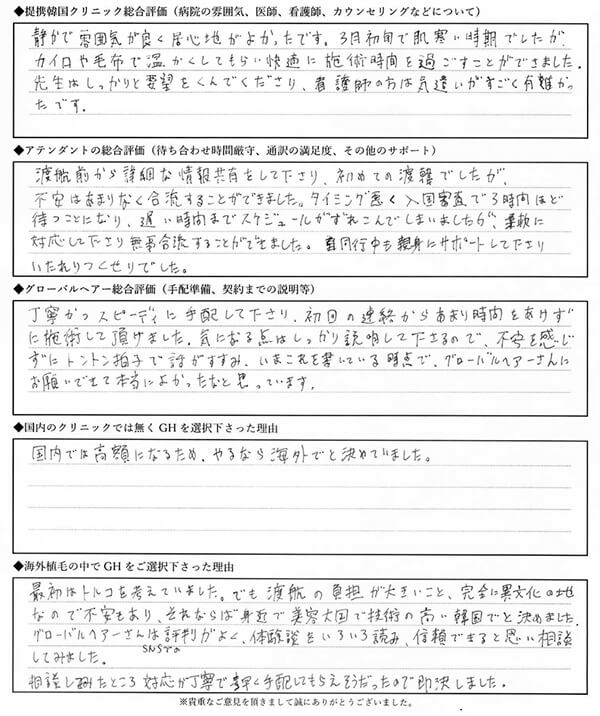 ◆提携韓国クリニック総合評価（病院の雰囲気、医師、看護師、カウンセリングなどについて）
静かで雰囲気が良く居心地がよかったです。3月初旬で肌寒い時期でしたが、
カイロや毛布で温かくしてもらい快適に施術時間を過ごすことができました。
先生はしっかりと要望をくんでくださり、看護師の方は気遣いがすごく有難かっ
たです。
◆アテンダントの総合評価（待ち合わせ時間厳守、通訳の満足度、その他のサポート）
渡航前から詳細な情報共有をして下さり、初めての渡韓でしたが、
不安はあまりなく合流することができました。タイミング悪く入国審査で3時間ほど
待つことになり、遅い時間までスケジュールがずれこんでしまいましたが、柔軟に
対応して下さり無事合流することができました。同行中も親身にサポートして下さり
いたれりつくせりでした。
◆グローバルヘアー総合評価（手配準備、契約までの説明等）
丁寧かつスピーディに手配して下さり、初回の連絡からあまり時間をあけず
に施術して頂けました。気になる点はしっかり説明して下さるので、不安を感じ
ずにトントン拍子で話がすすみ、いまこれを書いている時点で、グローバルヘアーさんに
お願いできて本当によかったなと思っています。
◆国内のクリニックでは無くGHを選択下さった理由
国内では高額になるため、やるなら海外でと決めていました。
◆海外植毛の中でGHをご選択下さった理由
最初はトルコを考えていました。でも渡航の負担が大きいこと、完全に異文化の地
なので不安もあり、それならば身近で美容大国で技術の高い韓国でと決めました。
グローバルヘアーさんは評判がよく、SNSでの体験談をいろいろ読み、信頼できると思い相談
してみました。
相談してみたところ対応が丁寧で素早く手配してもらえそうだったので即決しました。
※貴重なご意見を頂きまして誠にありがとうございました。